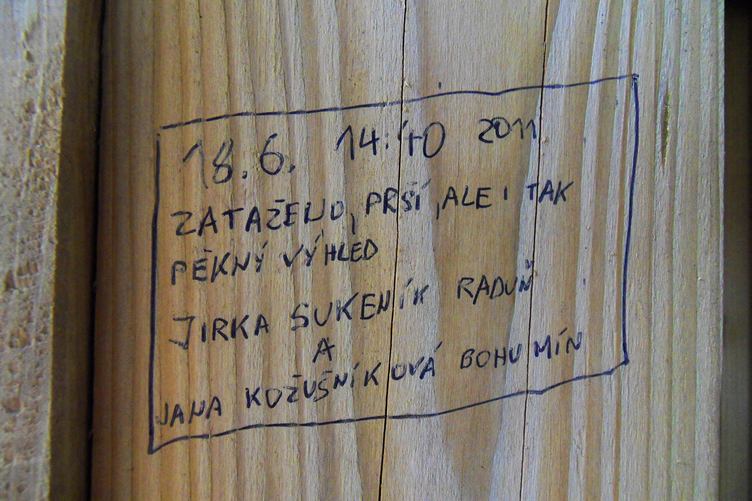 18.6. 14:40 2011
ZATAŽENO, PRŠÍ, ALE I TAK
PĚKNÝ VÝHLED
JIRKA SUKENÍK RADUŇ
A
JANA KOŽUŠNÍKOVÁ BOHUMÍN